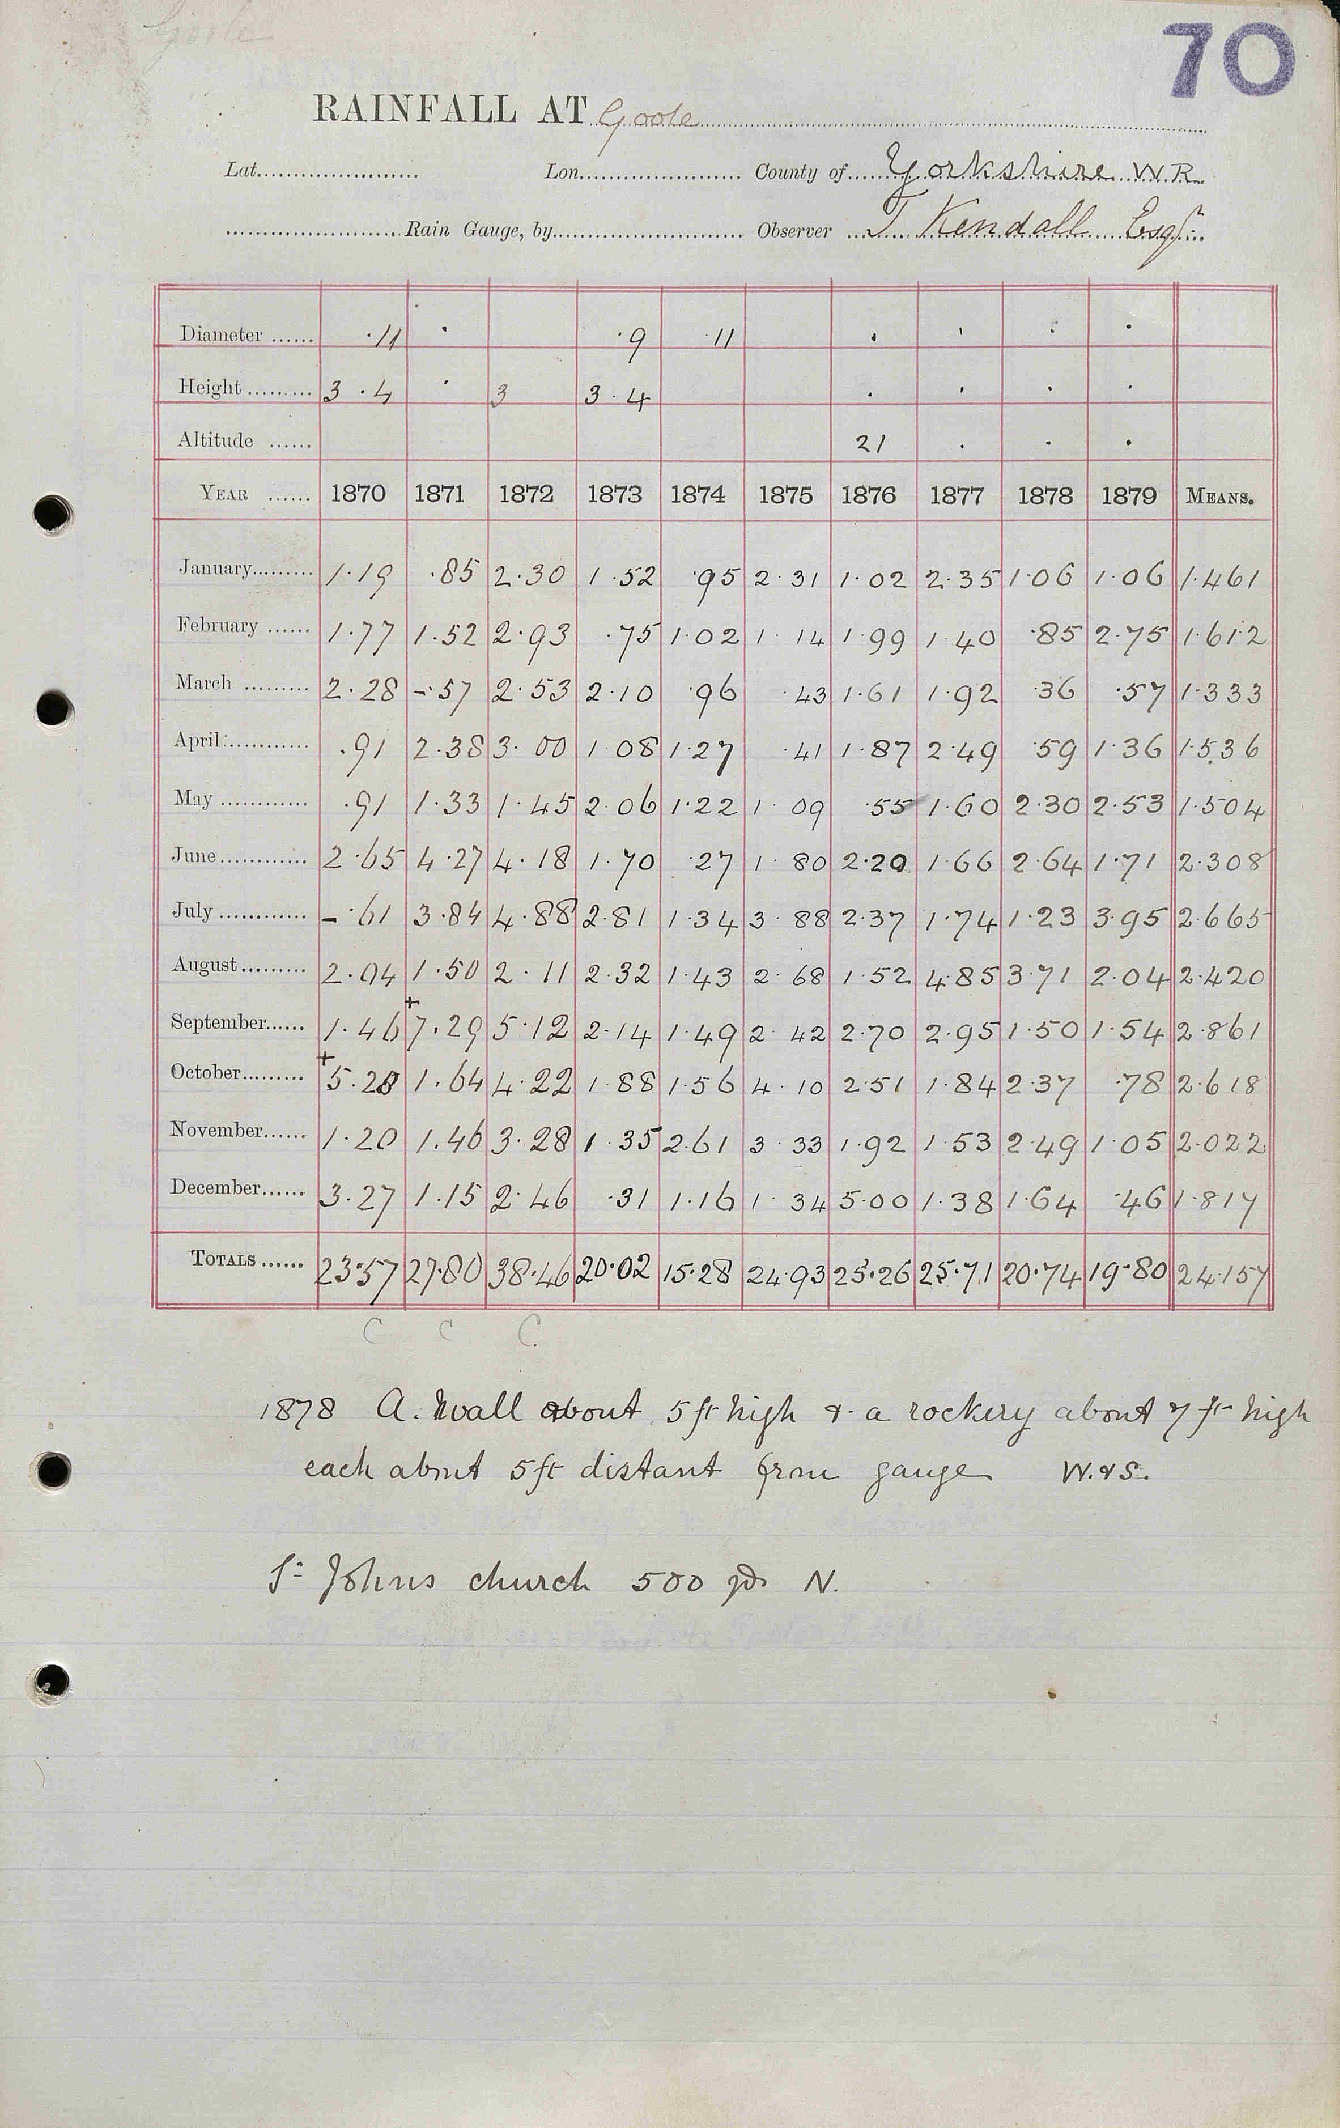 Goole
70
RAINFALL AT Goole
Lat. Lon. County of Yorkshire W.R.
Rain Gauge, by Observer T Kendall Esqr.
Diameter ...... ·11 · ·9 ·11 · · · ·
Height ......... 3 ·4 · 3 3·4 · · · ·
Altitude ...... 21 · · ·
YEAR ...... 1870 1871 1872 1873 1874 1875 1876 1877 1878 1879 MEANS.
January......... 1·19 ·85 2·30 1·52 ·95 2·31 1·02 2·35 1·06 1·06 1·461
February ...... 1·77 1·52 2·93 ·75 1·02 1·14 1·99 1·40 ·85 2·75 1·612
March ......... 2·28 -·57 2·53 2·10 ·96 ·43 1·61 1·92 ·36 ·57 1·333
April............ ·91 2·38 3·00 1·08 1·27 ·41 1·87 2·49 ·59 1·36 1·536
May ............ ·91 1·33 1·45 2·06 1·22 1·09 ·55 1·60 2·30 2·53 1·504
June............ 2·65 4·27 4·18 1·70 ·27 1·80 2·20 1·66 2·64 1·71 2·308
July ............ -·61 3·84 4·88 2·81 1·34 3·88 2·37 1·74 1·23 3·95 2·665
August......... 2·04 1·50 2·11 2·32 1·43 2·68 1·52 4·85 3·71 2·04 2·420
September...... 1·46 +7·29 5·12 2·14 1·49 2·42 2·70 2·95 1·50 1·54 2·861
October......... +5·28 1·64 4·22 1·88 1·56 4·10 2·51 1·84 2·37 ·78 2·618
November...... 1·20 1·46 3·28 1·35 2·61 3·33 1·92 1·53 2·49 1·05 2·022
December...... 3·27 1·15 2·46 ·31 1·16 1·34 5·00 1·38 1·64 ·46 1·817
TOTALS ...... 23·57 27·80 38·46 20·02 15·28 24·93 25·26 25·71 20·74 19·80 24·157
C C C.
1878 A. wall about 5 ft high & a rockery about 7 ft high
each about 5 ft distant from gauge W. & S.
St Johns church 500 yds N.